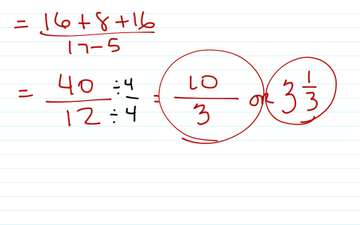 = 16+8+16 / 17-5
= 40 ÷4 / 12 ÷4 = 10/3 or 3 1/3